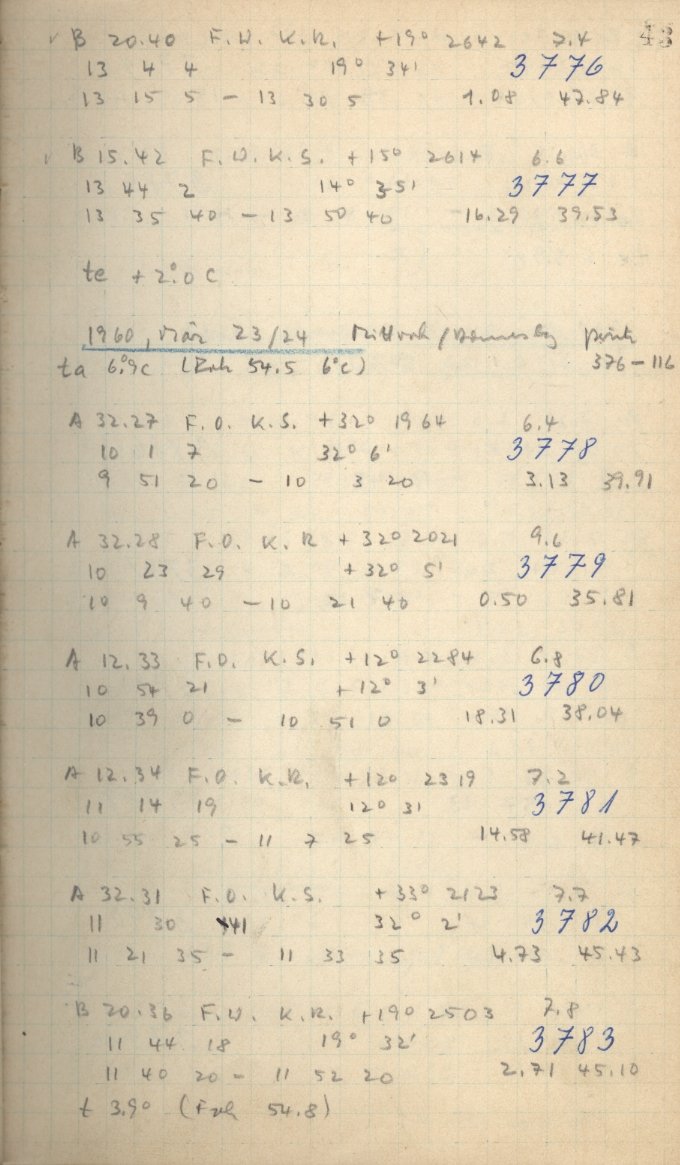 43
√ B 20.40 F.W. K.R. +19° 2642 7.4
13 4 4 19° 34' 3776
13 15 5 – 13 30 5 1.08 47.84
√ B 15.42 F.W. K.S. +15° 2614 6.6
13 44 2 14° 35' 3777
13 35 40 – 13 50 40 16.29 39.53
te + 2°.0 C
1960, März 23/24 Mittwoch / Donnerstag
ta 6°.9c ( 54.5 6°c) 376–116
A 32.27 F.O. K.S. +32° 1964 6.4
10 1 7 32° 6' 3778
9 51 20 – 10 3 20 3.13 39.91
A 32.28 F.O. K.R +32° 2021 9.6
10 23 29 +32° 5' 3779
10 9 40 – 10 21 40 0.50 35.81
A 12.33 F.O. K.S. +12° 2284 6.8
10 54 21 +12° 3' 3780
10 39 0 – 10 51 0 18.31 38.04
A 12.34 F.O. K.R. +12° 2319 7.2
11 14 19 12° 31 3781
10 55 25 – 11 7 25 14.58 41.47
A 32.31 F.O. K.S. +33° 2123 7.7
11 30 41 32° 2' 3782
11 21 35 – 11 33 35 4.73 45.43
B 20.36 F.W. K.R. +19° 2503 7.8
11 44 18 19° 32' 3783
11 40 20 – 11 52 20 2.71 45.10
t 3.9° ( 54.8)